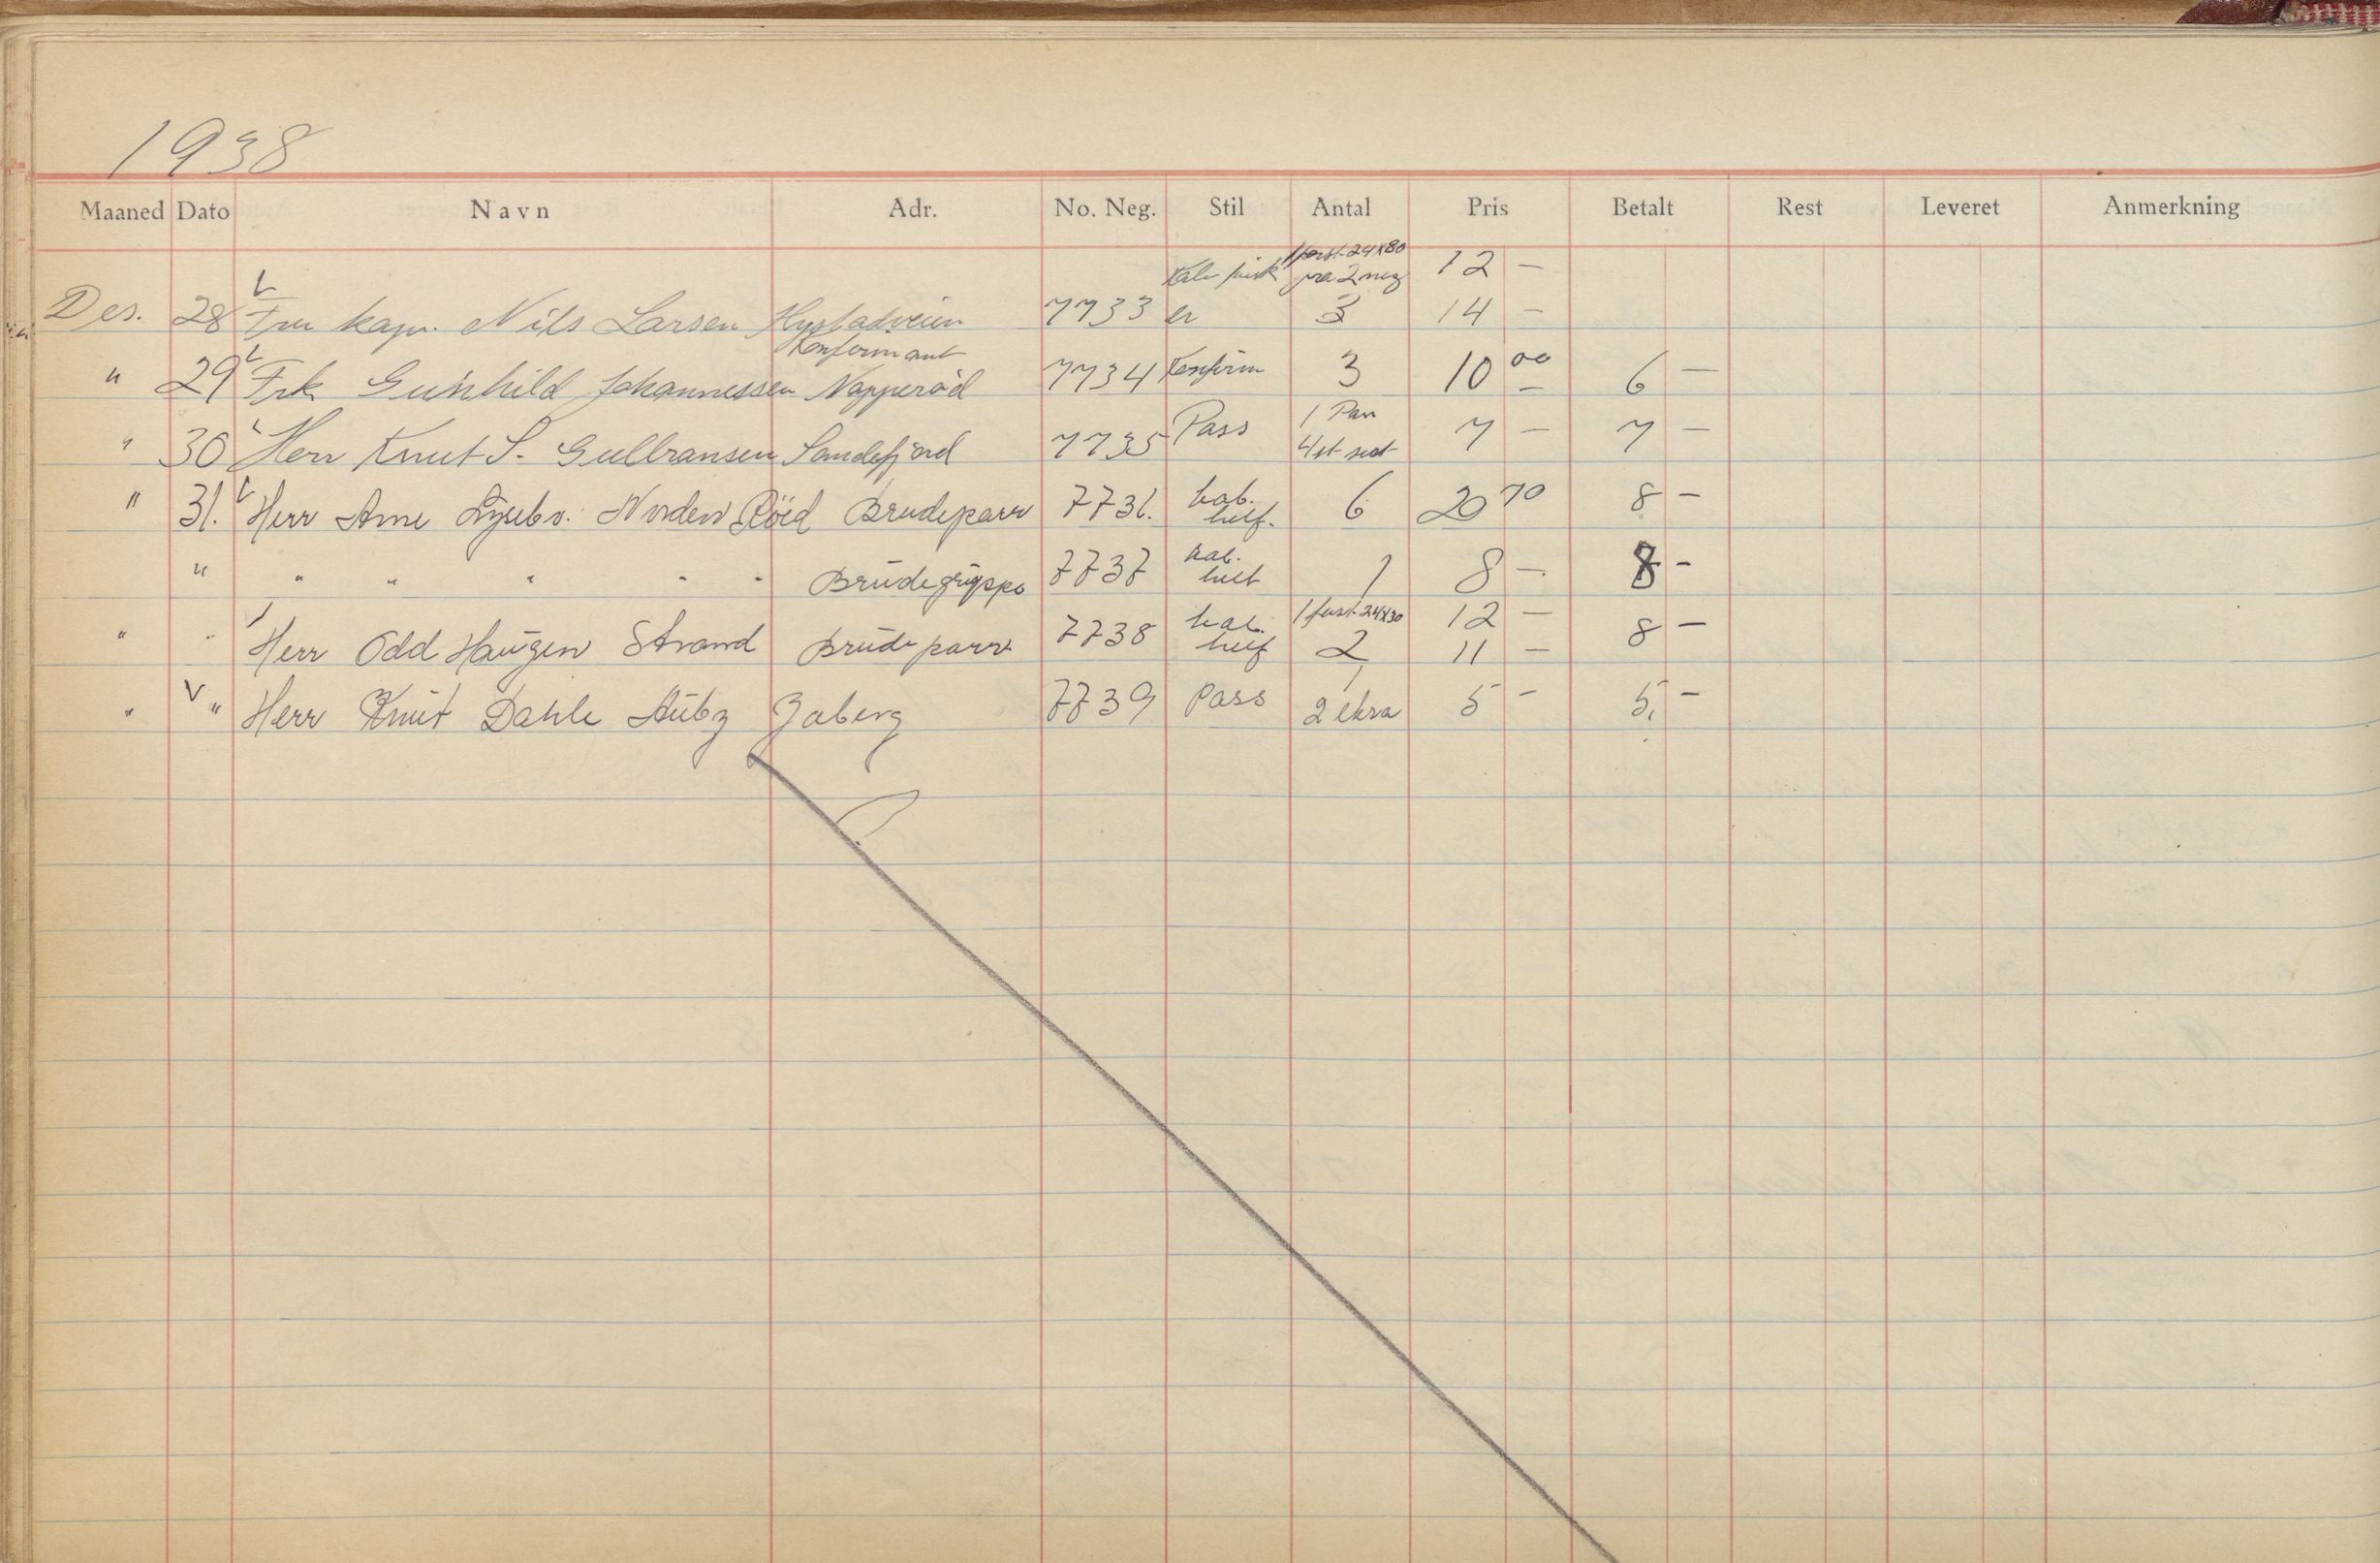 1938
Maaned Dato Navn Adr. No. Neg. Stil Antal Pris Betalt Rest Leveret Anmerkning
1 forst. 24x80
Kab fra 2 neg 12 —
Des. 28 Fru kapt. Nils Larsen Hystadveien 7733 er 3 14 —
Konfirmant
" 29 Frk Gunhild Johannessen Napperød 7734 Konfirm 3 10 00 6 —
1 Pan
" 30 Herr Knut S. Gullransen Sandefjord 7735 Pass 4 st 7 — 7 —
" 31. Herr Arne Norden Röed Brudeparr 7736. kab. 6 20 70 8 —
" " " " " " Brudegruppe 7737 kab. helt 1 8 — 8 —
1 forst. 24x30 12 —
" " Herr Odd Haugen Strand Brudeparr 7738 kab. 2 11 — 8 —
" " Herr Knut Dahle Aüby Jaberg 7739 Pass 2 ekra 5 — 5, —